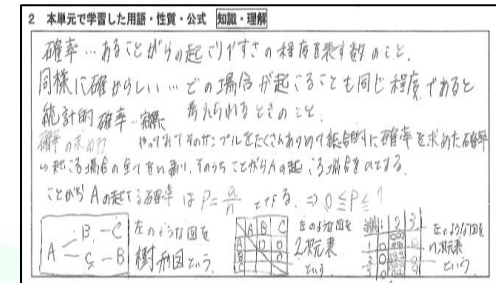 2 本単元で学習した用語・性質・公式 知識・理解
確率…あることがらの起こりやすさの程度を表す数のこと。
同様に確からしい…どの場合が起こることも同じ程度であると
考えられるときのこと。
統計的確率…実際に
やってみてそのサンプルをたくさんあつめて総合的に確率を求めた確率
確率の求め方
起こる場合の全てをn通り、そのうちことがらAの起こる場合をaとする。
ことがらAの起こる確率は P=a/n とする。⇒ 0≦P≦1
A B C C B
左のような図を
樹形図という
A B C
A
B
C
左のような図を
2次元表
という
1 2 3
1
2
3
左のような図を
次元表
という